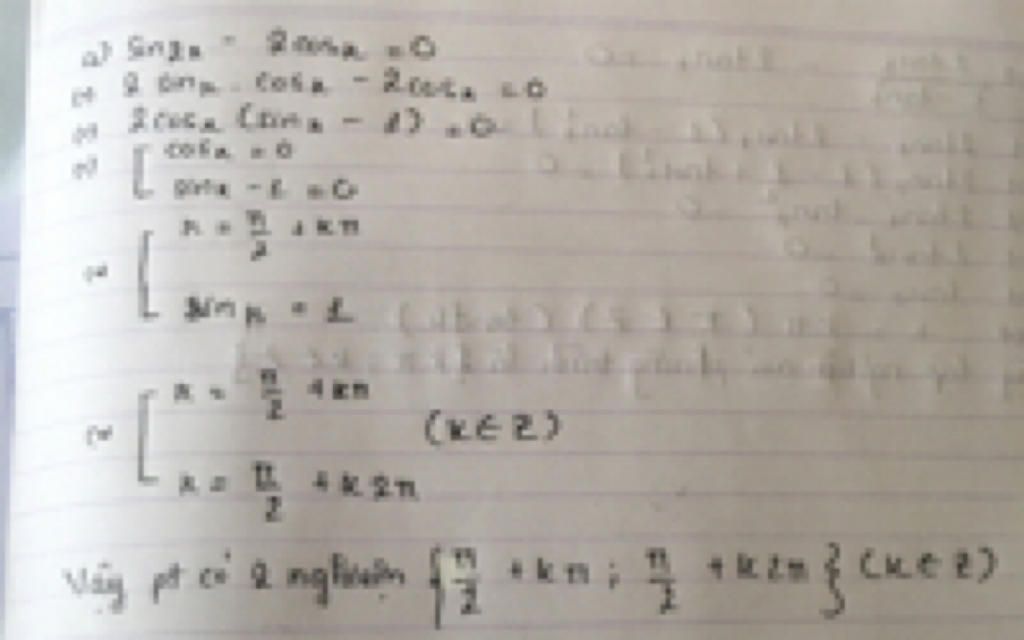 a) sin2x - 2cosx = 0
⇔ 2 sinx . cosx - 2cosx = 0
⇔ 2cosx (sinx - 1) = 0
⇔ [ cosx = 0
sinx - 1 = 0
⇔ [ x = π/2 + kπ
sinx = 1
⇔ [ x = π/2 + kπ
(k ∈ Z)
x = π/2 + k2π
Vậy pt có 2 nghiệm { π/2 + kπ ; π/2 + k2π } (k ∈ Z)